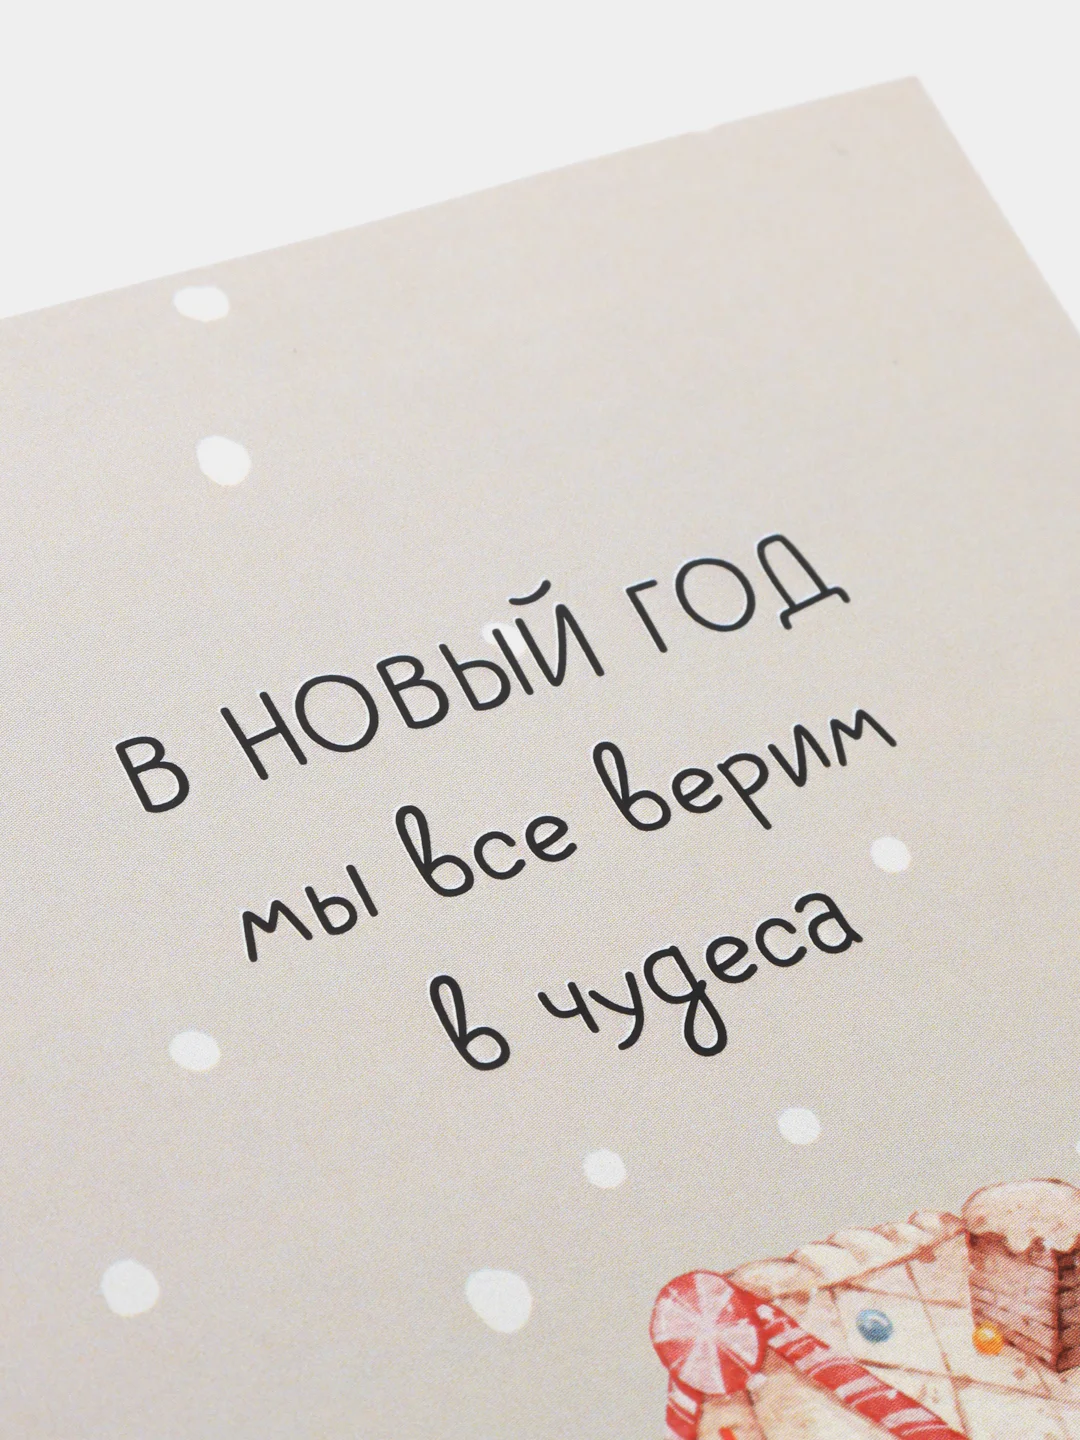 В НОВЫЙ ГОД
мы все верим
в чудеса